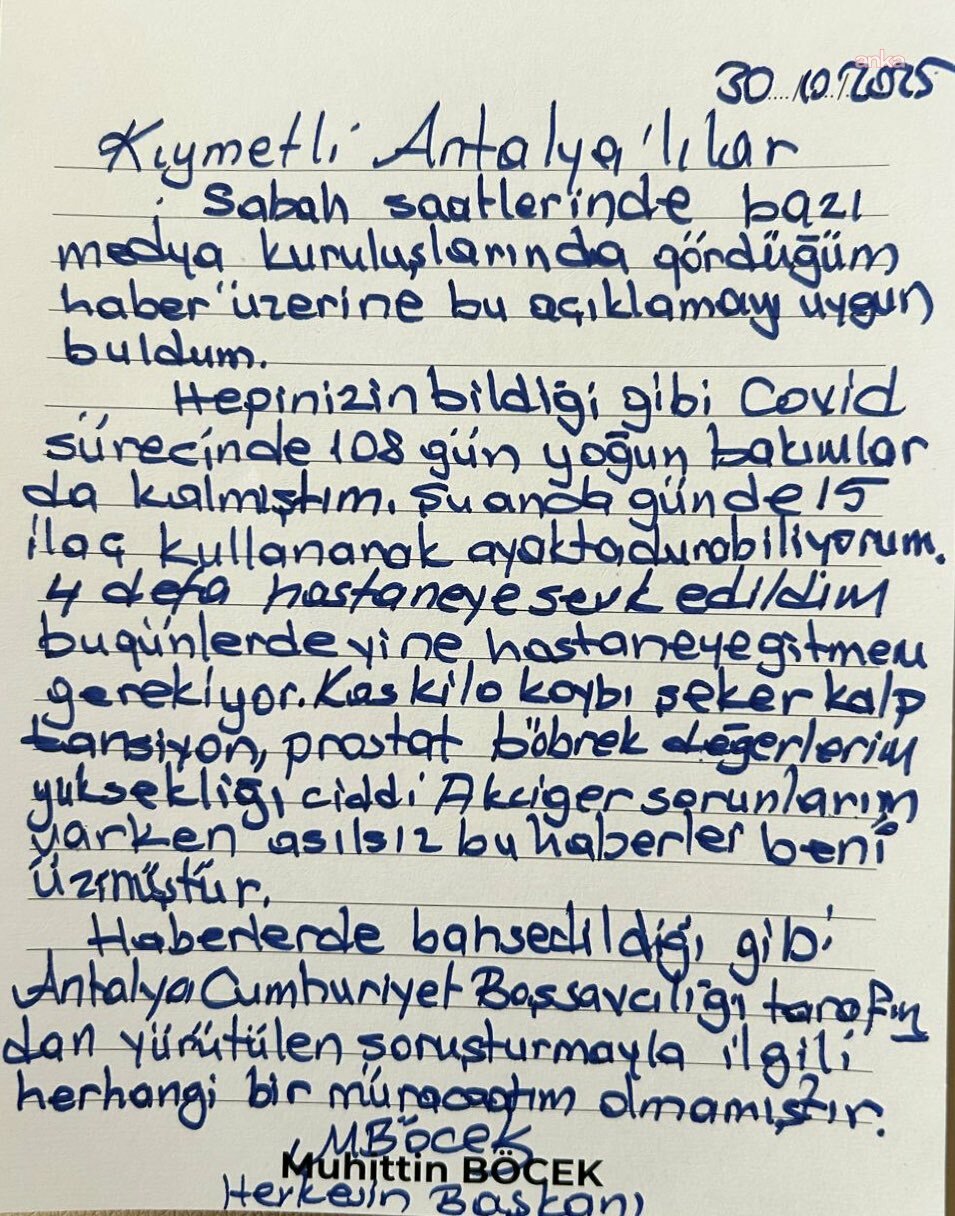 anka
30.10.2025
Kıymetli Antalya'lılar
Sabah saatlerinde bazı
medya kuruluşlarında gördüğüm
haber üzerine bu açıklamayı uygun
buldum.
Hepinizin bildiği gibi Covid
sürecinde 108 gün yoğun bakımlar
da kalmıştım. Şu anda günde 15
ilaç kullanarak ayakta durabiliyorum.
4 defa hastaneye sevk edildim
bugünlerde yine hastaneye gitmem
gerekiyor. Kas kilo kaybı şeker kalp
tansiyon, prostat böbrek değerlerim
yüksekliği ciddi Akciğer sorunlarım
varken asılsız bu haberler beni
üzmüştür.
Haberlerde bahsedildiği gibi
Antalya Cumhuriyet Başsavcılığı tarafın
dan yürütülen soruşturmayla ilgili
herhangi bir müracaatım olmamıştır.
M Böcek
Muhittin BÖCEK
Herkesin Başkanı